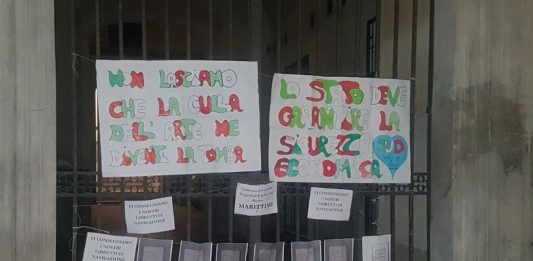 NON LASCIAMO
CHE LA CULLA
DELL'ARTE NE
DIVENTI LA TOMBA
LO STATO DEVE
GARANTIRE LA
SICUREZZA
ECONOMICA
SUD
MARITTIMI
VI CONSEGNIAMO
I NOSTRI
LIBRETTI DI
NAVIGAZIONE
VI CONSEGNIAMO
I NOSTRI
LIBRETTI DI
NAVIGAZIONE
VI CONSEGNIAMO
I NOSTRI
LIBRETTI DI
NAVIGAZIONE